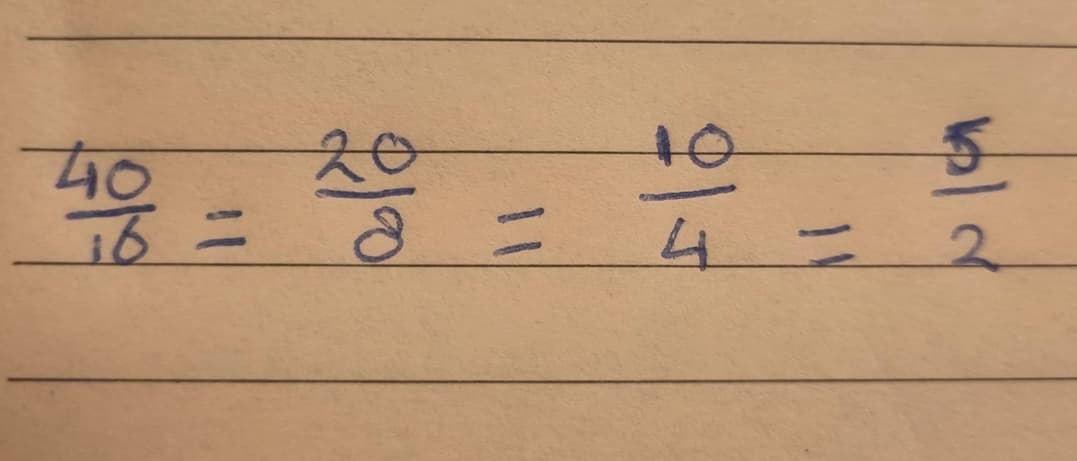 40/16 = 20/8 = 10/4 = 5/2